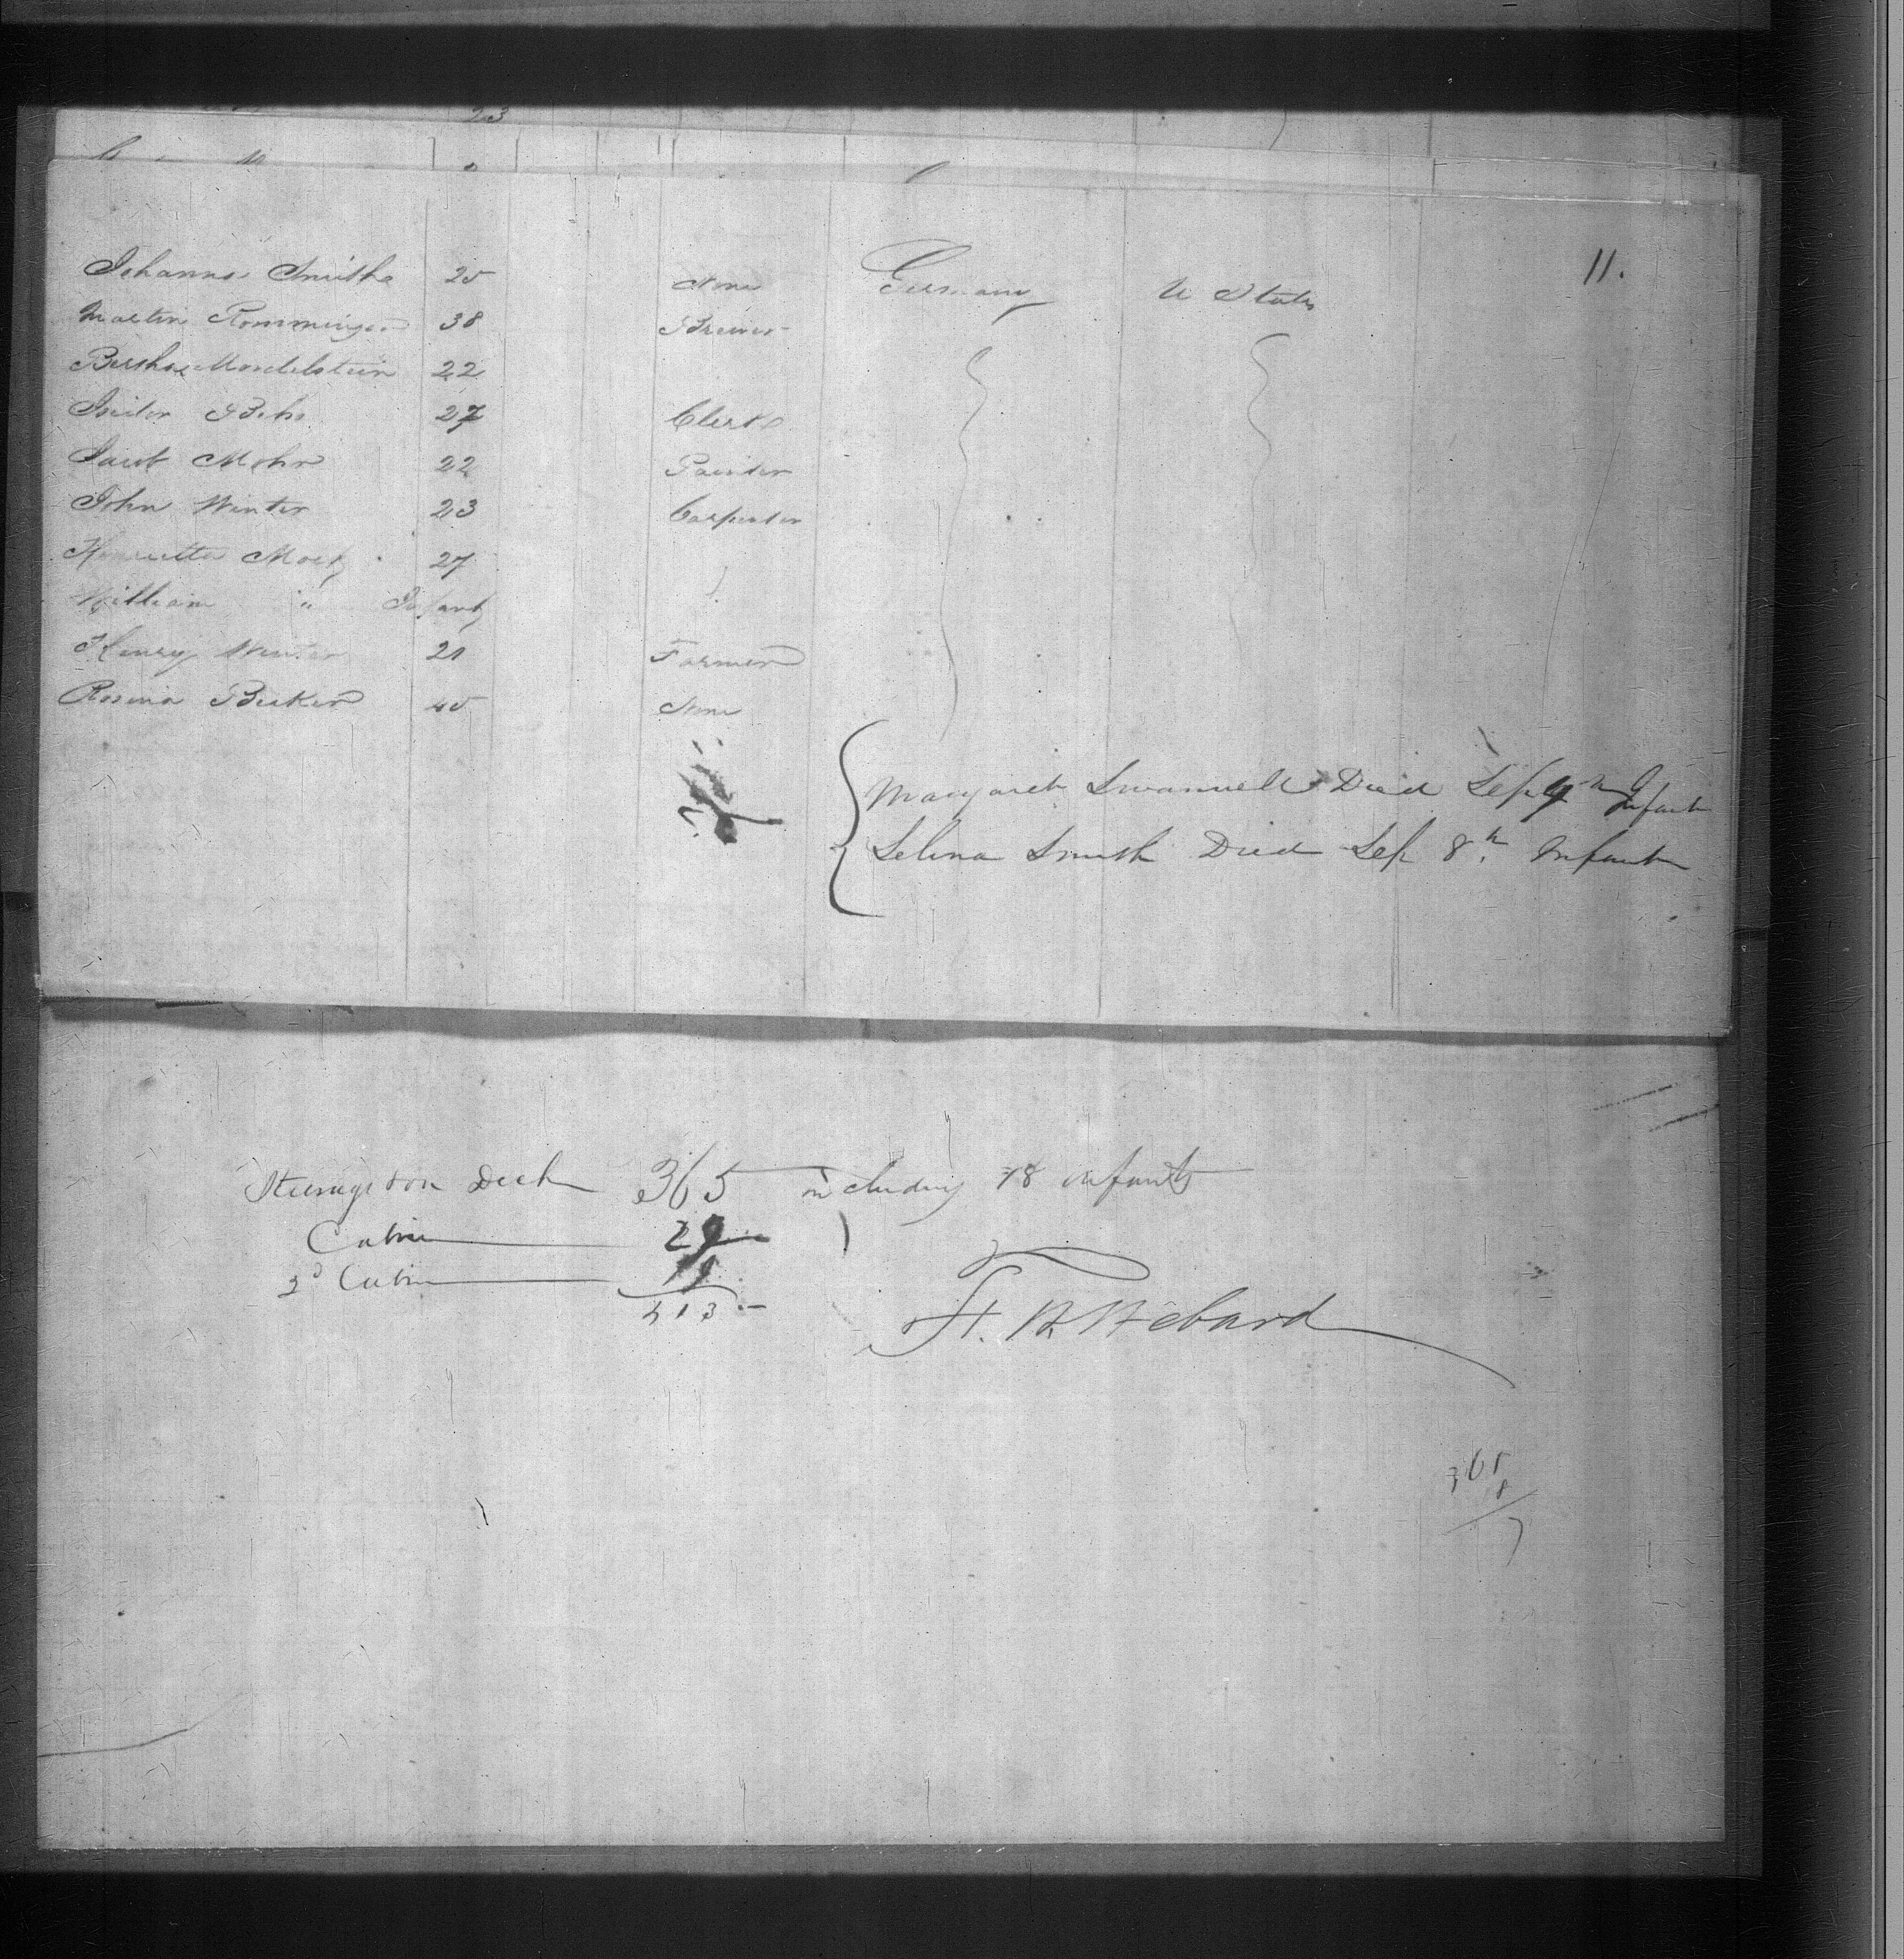 23
11.
Johanna Smith 25 None Germany U States
Martin Romminger 38 Brewer
Bertha Mendelstein 22
Isidor Behr 27 Clerk
Jacob Mohr 22 Painter
John Winter 23 Carpenter
Henrietta 27
William " Infant
Henry Winter 21 Farmer
Rosina Becker 45 None
Margaret Swanwell Died Sep 9th Infant
Selina Smith Died Sep 8th Infant
Steerage on Deck 365 including 18 infants
Cabin 29
2d Cabin 19
413
F. W. Hebard
365
8
7